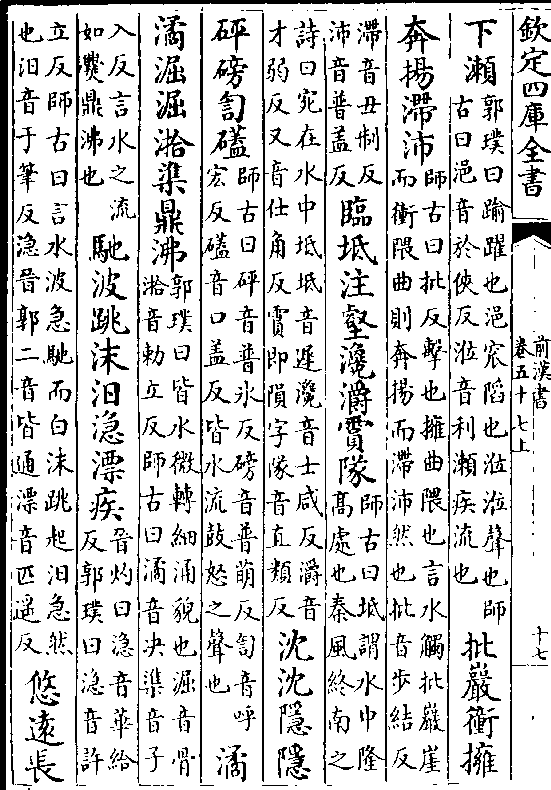 欽定四庫全書
前漢書
卷五十七上
十七
下瀨
郭璞曰踰躍也浥窊陷也涖涖聲也師
古曰浥音於俠反涖音利瀨疾流也
批巖衝擁
奔揚滯沛
師古曰批反擊也擁曲隈也言水觸批巖崖
而衝隈曲則奔揚而滯沛然也批音步結反
滯音丑制反
沛音普蓋反
臨坻注壑瀺灂霣隊
師古曰坻謂水中隆
髙處也秦風終南之
詩曰宛在水中坻坻音遲瀺音士咸反灂音
才弱反又音仕角反霣即隕字隊音直類反
沈沈隱隱
砰磅訇礚
師古曰砰音普冰反磅音普萌反訇音呼
宏反礚音口蓋反皆水流鼓怒之聲也
潏
潏淈淈湁潗鼎沸
郭璞曰皆水微轉細涌貌也淈音骨
湁音勅立反師古曰潏音决潗音子
入反言水之流
如爨鼎沸也
馳波跳沫汩㴔漂疾
晉灼曰㴔音華給
反郭璞曰㴔音許
立反師古曰言水波急馳而白沫跳起汩急然
也汩音于筆反㴔晉郭二音皆通漂音匹遥反
悠逺長